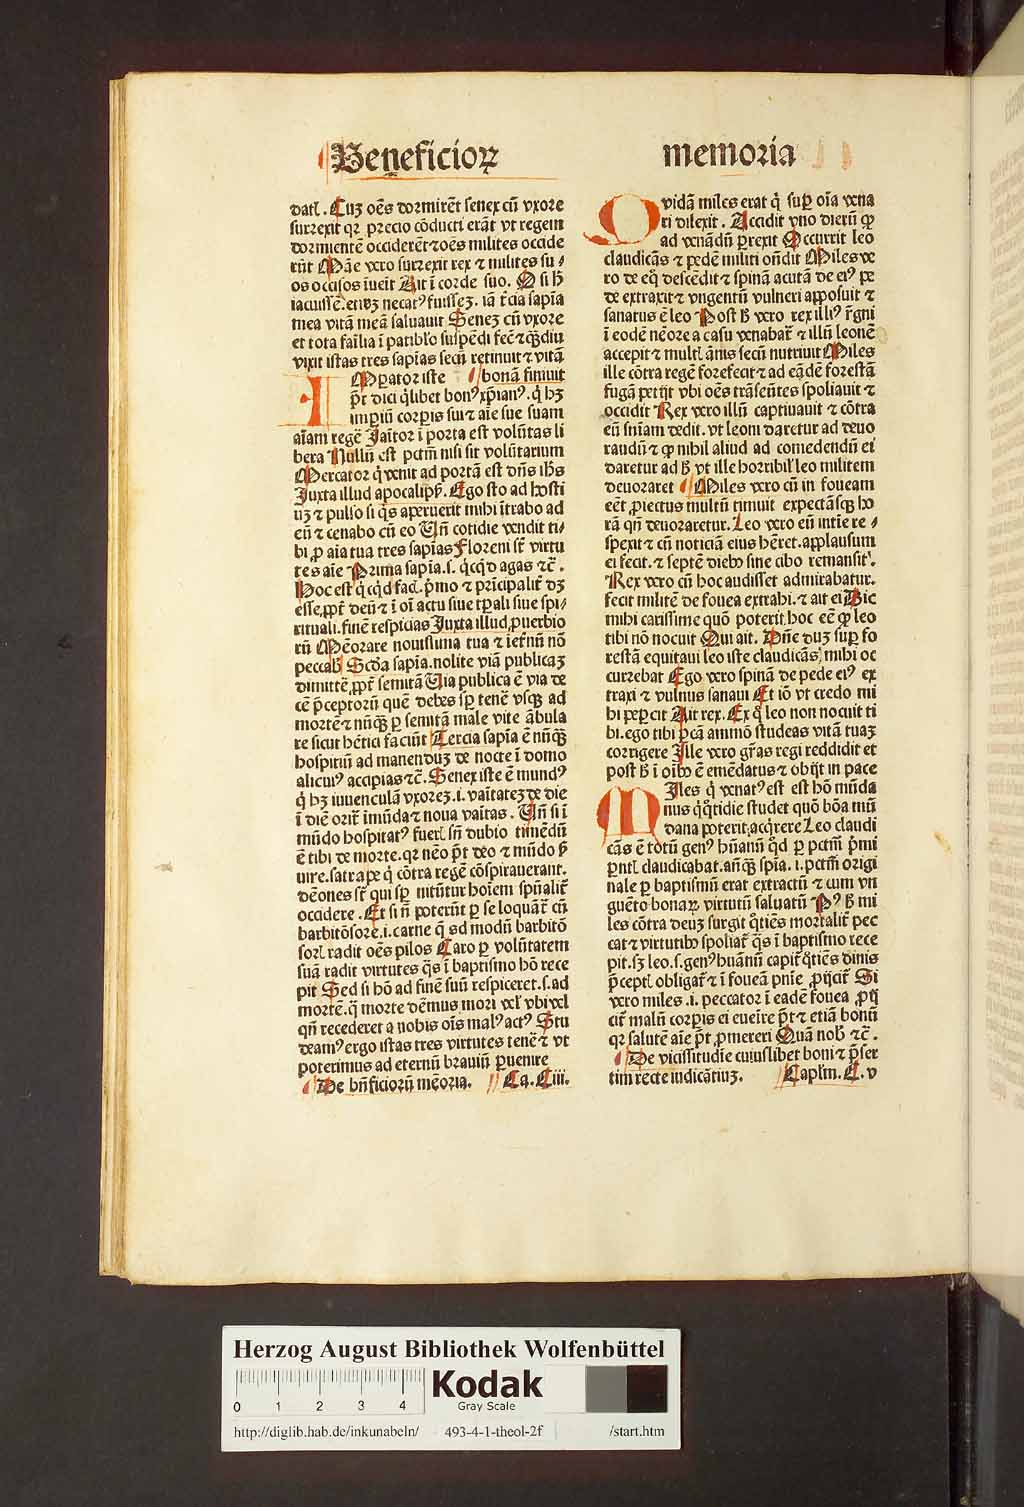 Beneficioꝝ
memoria
datl̃. Cuꝫ oẽs dormirẽt senex cũ vxore
surrexit qꝛ precio cõducti erãt vt regem
dormientẽ occiderẽt ⁊ oẽs milites occide
rũt Mãe vero surrexit rex ⁊ milites su⸗
os occisos iueit Ait ĩ corde suo. O si ħ
iacuissẽ. enꝫ necatꝰ fuisseꝫ. iã t̃cia sapĩa
mea vitã meã saluauit Seneꝫ cũ vxore
et tota familia ĩ patibl'o suspẽdi fec̃ ⁊ qͣꝫdiu
vixit istas tres sapĩas secũ retinuit ⁊ vitã
bonã finiuit
IMperator iste
p̃t dici qͥlibet bonꝰ xp̃ianꝰ. qͥ hꝫ
imperiũ corpꝑis sui ⁊ aĩe sue suam
aĩam regẽ Janitor ĩ porta est volũtas li
bera Nullũ est pctm̃ nisi sit volũtarium
Mercator qͥ venit ad portã est dñs ihũs
Juxta illud apocalipꝭ. Ego sto ad hosti
uꝫ ⁊ pulso si qͥs aperuerit mihi ĩtrabo ad
eũ ⁊ cenabo cũ eo Uñ cotidie vendit ti⸗
bi ꝓ aĩa tua tres sapĩas Floreni st̃ virtu
tes aĩe Prima sapĩa. s. qͥcqͥd agas ⁊c̃.
Hoc est qͥcqͥd fac̃. pͥmo ⁊ prĩcipalit̃ dꝫ
esse, ꝓpt̃ deũ ⁊ ĩ oĩ actu siue tꝑali siue spi⸗
rituali. finẽ respicias Juxta illud ꝓuerbio
rũ Mẽorare nouissima tua ⁊ iet̃nũ nõ
peccabꝭ Scd̃a sapĩa. nolite viã publicaꝫ
dimittẽ, ꝓpt̃ semitã Uia publica ẽ via de
cẽ p̃ceptorũ quẽ debes sp̃ tenẽ vsqꝫ ad
mortẽ ⁊ nũqͣꝫ ꝑ semitã male vite ãbula
re sicut hẽtici faciũt Tercia sapĩa ẽ nũqͣꝫ
hospitiũ ad manenduꝫ de nocte ĩ domo
alicuiꝰ accipias ⁊c̃. Senex iste ẽ mundꝰ
qͥ hꝫ iuuenculã vxoreꝫ. i. vaĩtateꝫ de die
ĩ diẽ orit̃ ĩmũda ⁊ noua vaĩtas. Uñ si ĩ
mũdo hospitatꝰ fuerꝭ sñ dubio timẽdũ
ẽ tibi de morte. qꝛ nẽo p̃t deo ⁊ mũdo ẜ
uire. satrape qͥ cõtra regẽ cõspirauerant.
dẽones st̃ qui sp̃ nitũtur hoĩem spũalit̃
occidere. Et si ñ poterũt ꝑ se loquãt̃ cũ
barbitõsore. i. carne qͣ sd modũ barbitõ
sorꝭ radit oẽs pilos Caro ꝑ volũtatem
suã radit virtutes qͣs ĩ baptismo hõ rece
pit Sed si hõ ad finẽ suũ respiceret. s. ad
mortẽ. qͣ morte dẽmus mori vel' vbi vel
qñ recederet a nobis oĩs malꝰ actꝰ Stu
deamꝰ ergo istas tres virtutes tenẽ ⁊ vt
poterimus ad eternũ brauiũ ꝑuenire
De bñficiorũ mẽoria. Ca. Ciii.
QUidã miles erat qͥ suꝑ oĩa vena
ri dilexit. Accidit vno dierũ ꝙ
ad venãdũ ꝑrexit Occurrit leo
claudicãs ⁊ pedẽ militi oñdit Miles ve
ro de eqͦ descẽdit ⁊ spinã acutã de eiꝰ pe
de extraxit ⁊ vngentũ vulneri apposuit ⁊
sanatus ẽ leo Post ħ vero rex illiꝰ r̃gni
ĩ eodẽ nẽore a casu venabat̃ ⁊ illũ leonẽ
accepit ⁊ multꝭ ãnis secũ nutriuit Miles
ille cõtra regẽ forefecit ⁊ ad eãdẽ forestã
fugã petijt vbi oẽs trãseũtes spoliauit ⁊
occidit Rex vero illũ captiuauit ⁊ cõtra
eũ sñiam dedit. vt leoni daretur ad deuo
raudũ ⁊ ꝙ nihil aliud ad comedendũ ei
daretur ad ħ vt ille horribil' leo militem
deuoraret Miles vero cũ in foueam
eẽt ꝓiectus multũ timuit expectãsqꝫ ho
rã qñ deuoraretur. Leo vero eũ intie re⸗
spexit ⁊ cũ noticiã eius hẽret. applausum
ei fecit. ⁊ septẽ diebꝰ sine cibo remansit'.
Rex vero cũ hoc audisset admirabatur.
fecit militẽ de fouea extrahi. ⁊ ait ei Dic
mihi carissime quõ poterit hoc eẽ ꝙ leo
tibi nõ nocuit Qui ait. Dñe duꝫ suꝑ fo
restã equitaui leo iste claudicãs mihi oc
currebat Ego vero spinã de pede eiꝰ ex
traxi ⁊ vulnus sanaui Et iõ vt credo mi
hi pepercit Ait rex. Ex qͦ leo non nocuit ti
bi. ego tibi ꝑcã ammõ studeas vitã tuaꝫ
corrigere Jlle vero gr̃as regi reddidit et
post ħ ĩ oĩbꝰ ẽ emẽdatus ⁊ obijt in pace
MJles qͥ venatꝰ est est hõ mũda
nus qͥ qͦtidie studet quõ bõa mũ
dana poterit, acqͥrere Leo claudi
cãs ẽ totũ genꝰ hũanũ qͦd ꝑ pctm̃ pͥmi
ꝑntꝭ claudicabat. añqͣꝫ spĩa. i. pctm̃ origi
nale ꝑ baptismũ erat extractũ ⁊ cum vn
guẽto bonaꝝ virtutũ saluatũ Pꝰ ħ mi
les cõtra deuꝫ surgit qͦtiẽs mortalit̃ pec
cat ⁊ virtutibꝰ spoliat̃ qͣs ĩ baptismo rece
pit. sꝫ leo. s. genꝰ hũanũ capit̃ qͦtiẽs diuis
p̃ceptꝭ obligat̃ ⁊ ĩ foueã pñie ꝓijcit̃ Si
vero miles. i. peccator ĩ eadẽ fouea ꝓij
cit̃ malũ corpꝑis ei eueĩre p̃t ⁊ etiã bonũ
qꝛ salutẽ aĩe p̃t ꝓmereri Quã nobꝭ ⁊c̃.
De vicissitudĩe cuiuslibet boni ⁊ p̃ser
tim recte iudicãtiuꝫ. Capl'm. C. v
Herzog August Bibliothek Wolfenbüttel
0 1 2 3 4
Kodak
Gray Scale
http://diglib.hab.de/inkunabeln/ 493-4-1-theol-2f /start.htm